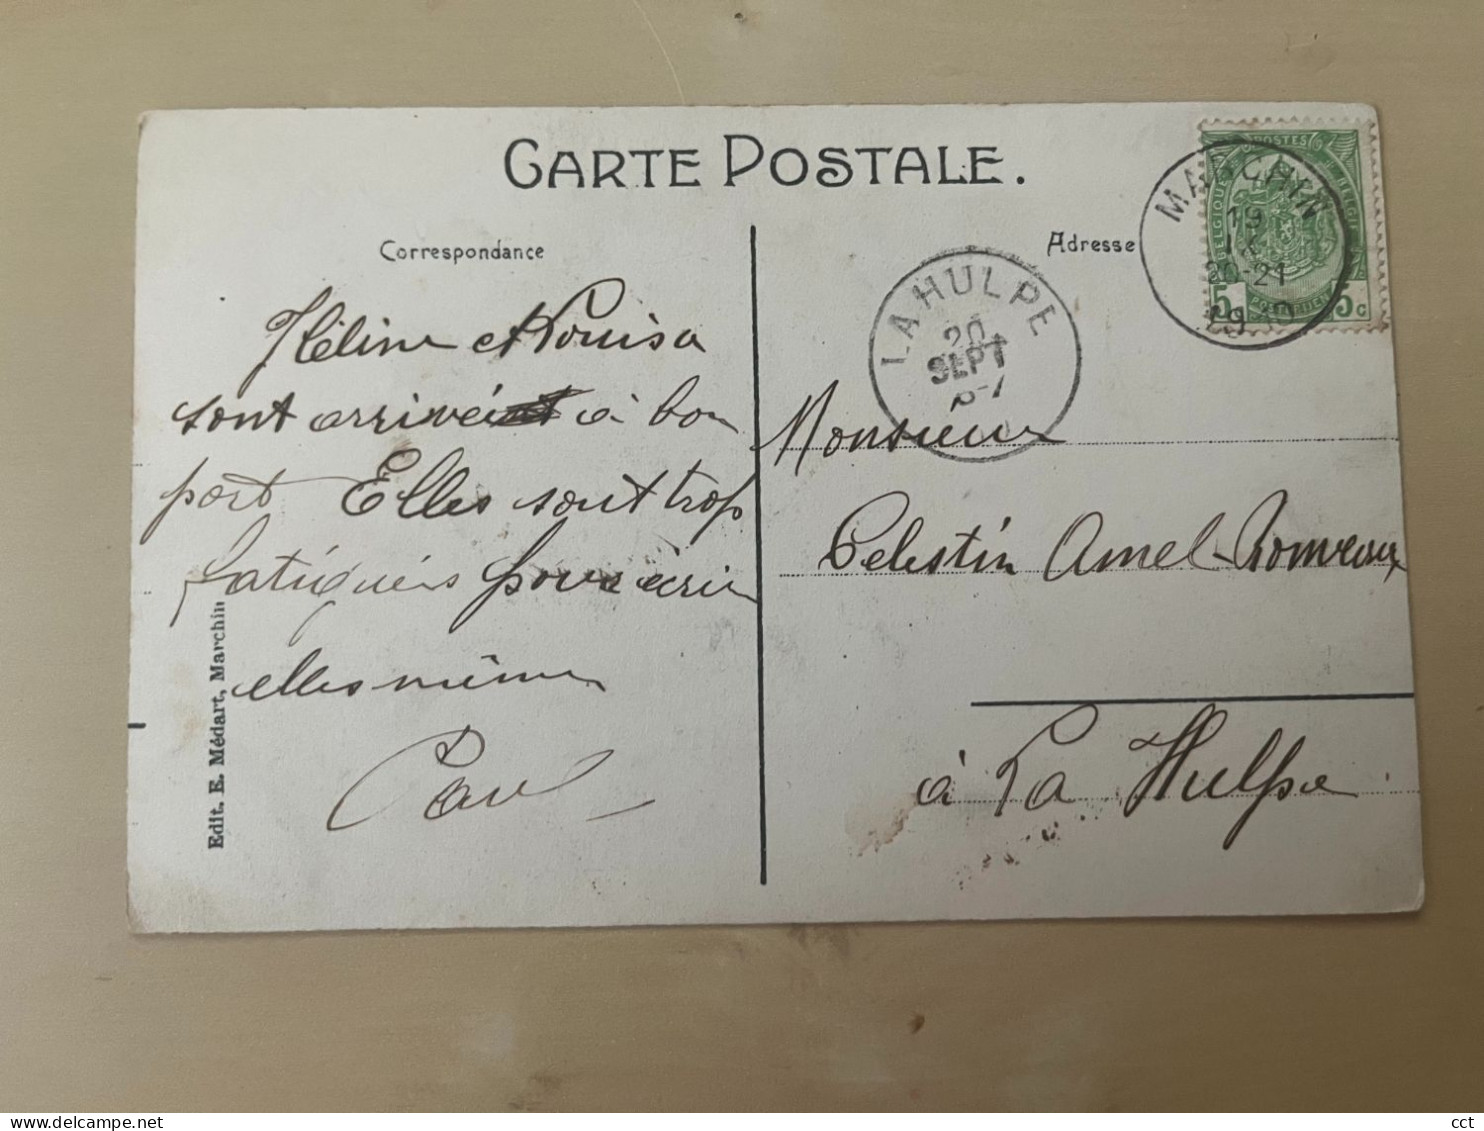 CARTE POSTALE.
Correspondance
Adresse
Héline et Louisa
sont arrivées à bon
port Elles sont trop
fatiguées pour écrire
elles même
Paul
Edit. E. Médart, Marchin
MARCHIN
19
20-21
POSTES
BELGIQUE
BELGIE
5 5c
LA HULPE
20
SEPT
Monsieur
Célestin Amel-
à La Hulpe
cct